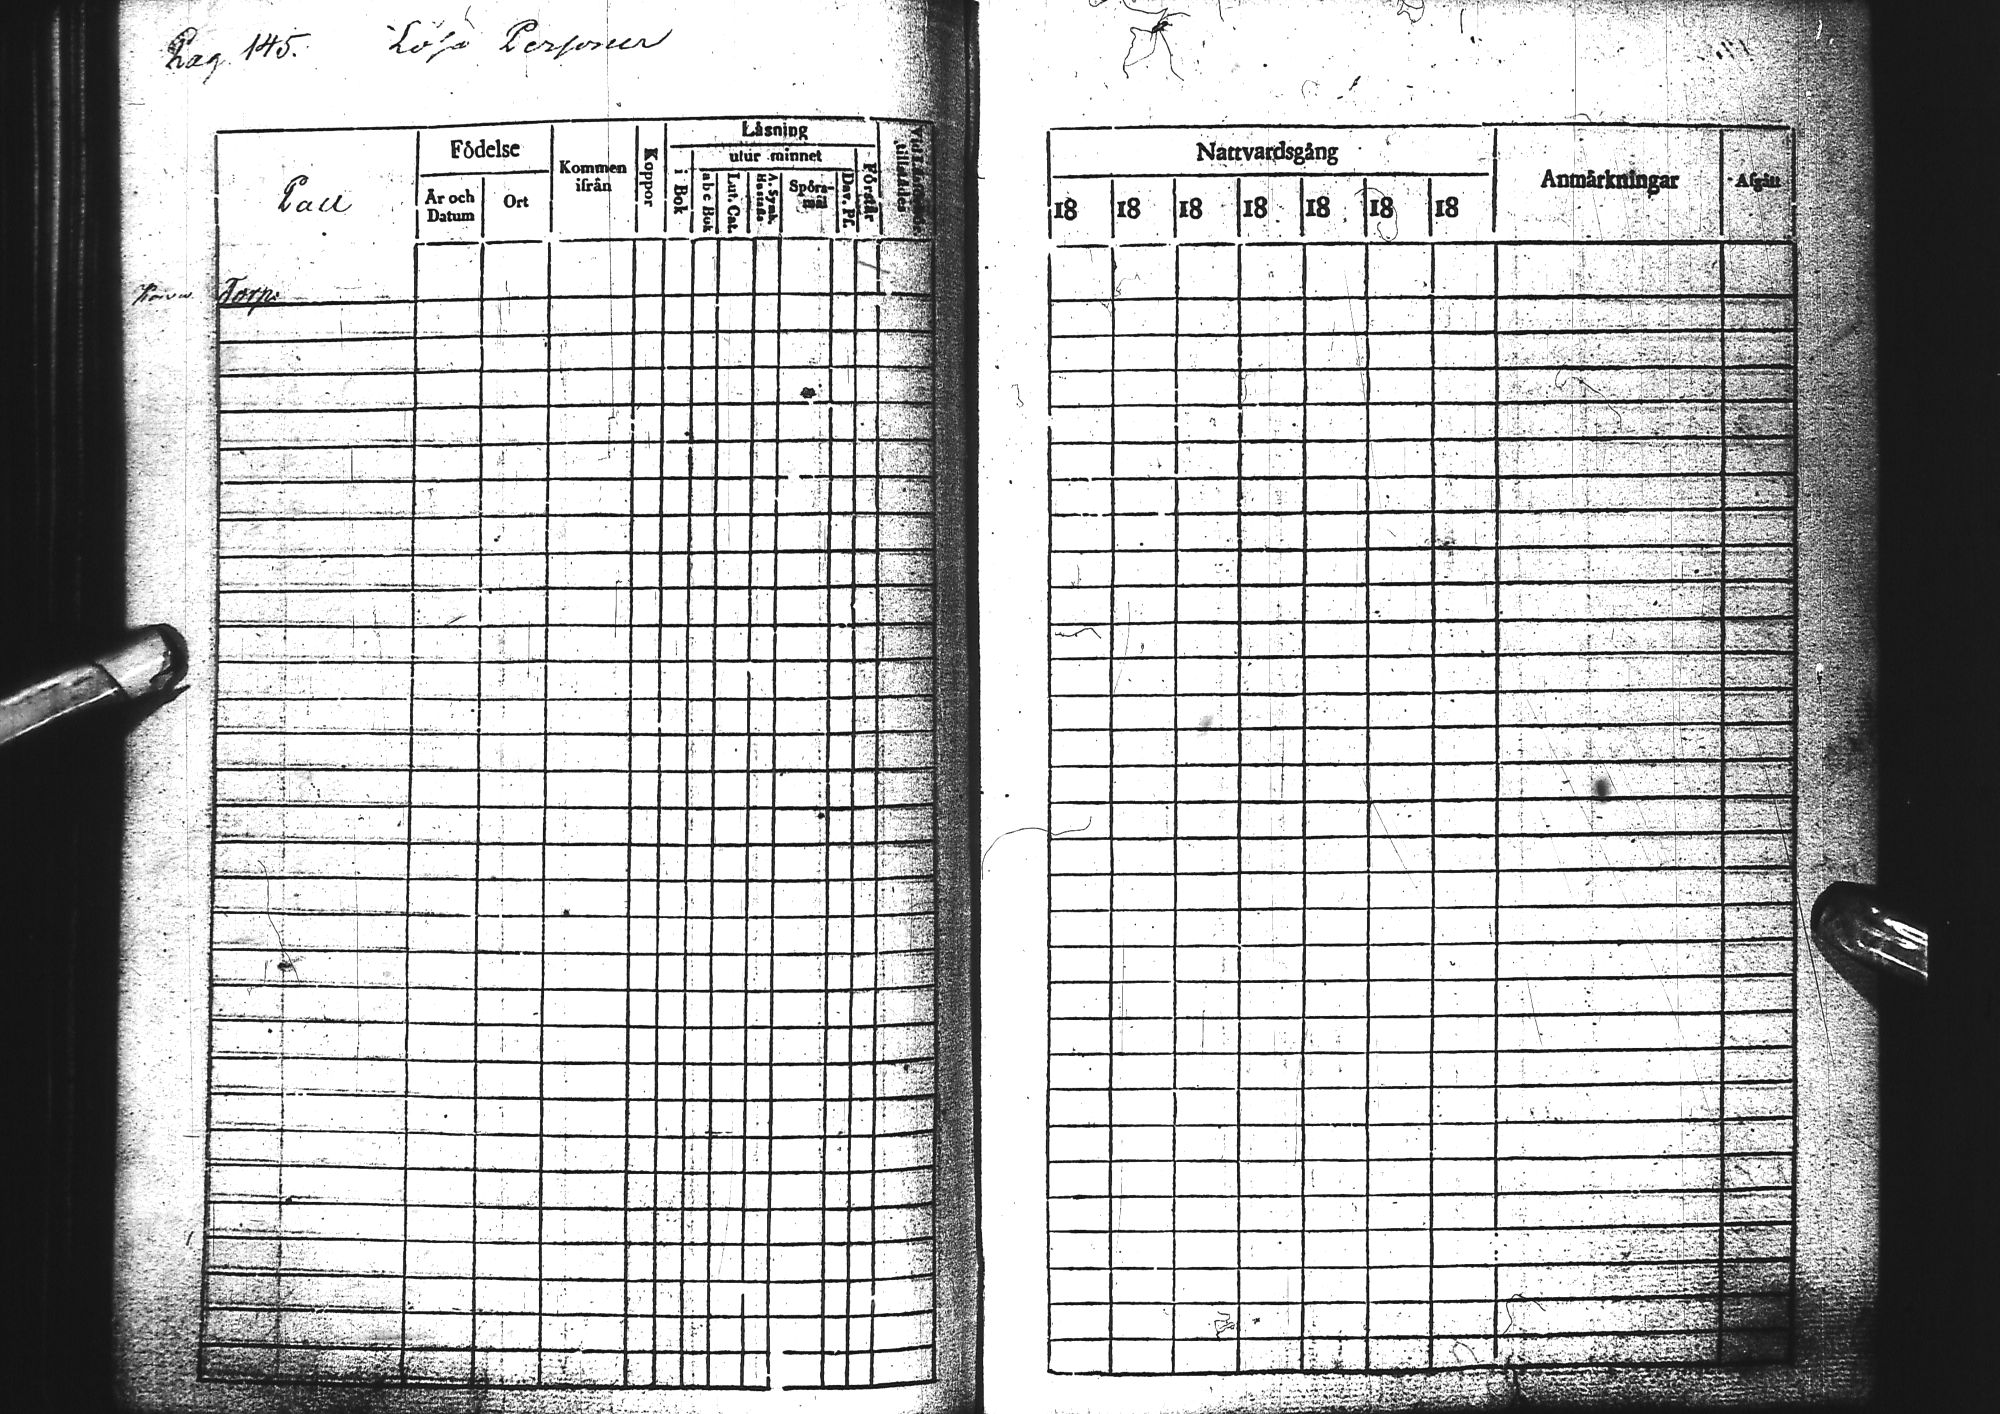 Pag. 145. Lösa Personer
Födelse
År och Datum
Ort
Kommen ifrån
Koppor
Läsning
i Bok
utur minnet
abc Bok
Lut. Cat.
Spörs-mål
Dav. Ps.
Förstår
Torp.
Nattvardsgång
18 18 18 18 18 18 18
Anmärkningar
Afgått